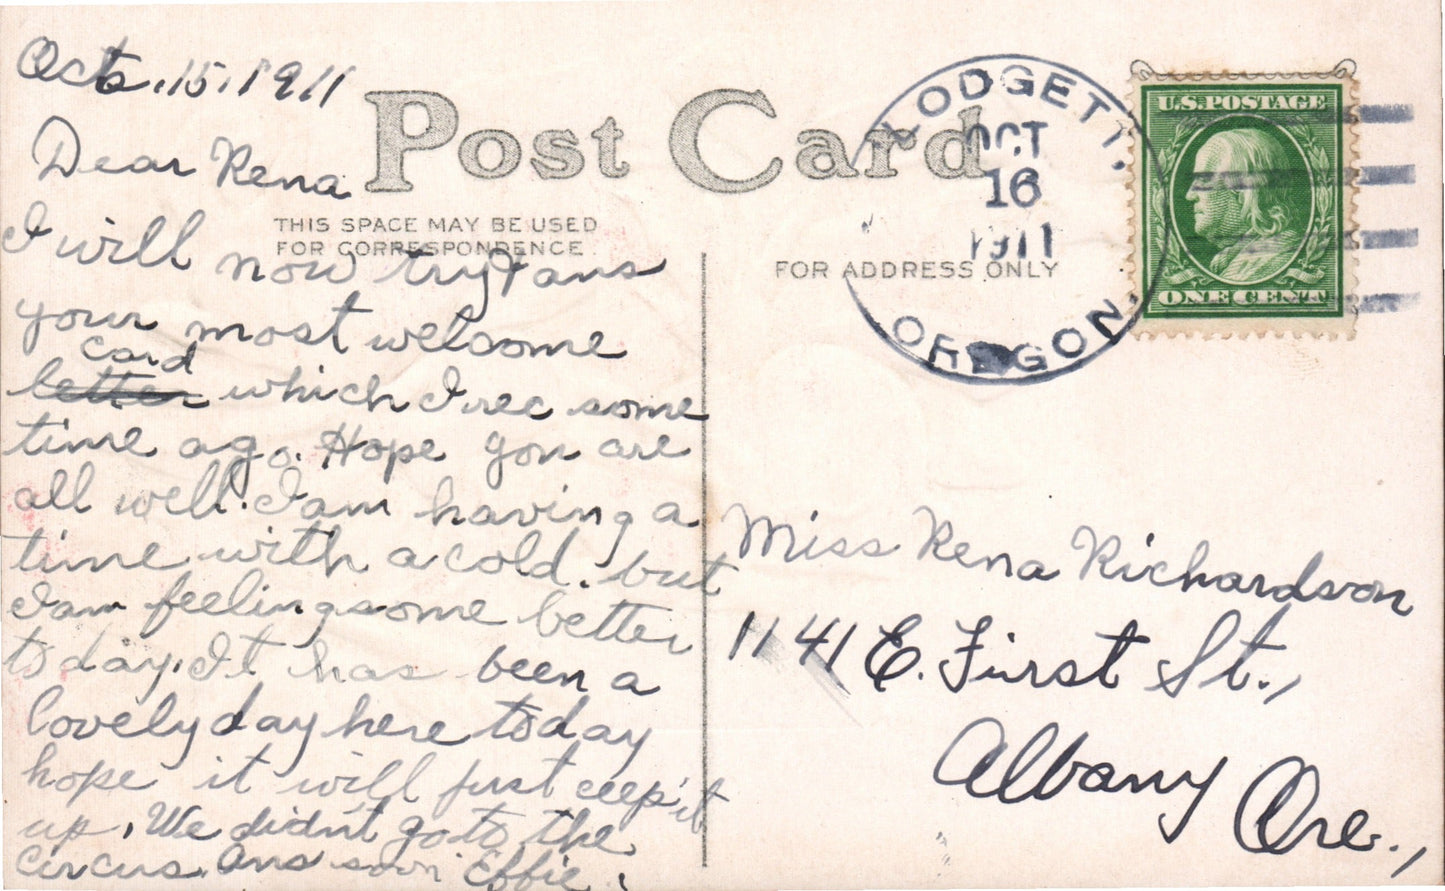 Oct. 15, 1911
Post Card
Dear Rena
THIS SPACE MAY BE USED
FOR CORRESPONDENCE
I will now try & ans
your most welcome
card
letter which I rec some
time ago. Hope you are
all well. I am having a
time with a cold. but
I am feeling some better
today. It has been a
lovely day here today
hope it will just ceep it
up. We didn't go to the
circus. Ans soon Effie.
LODGETT,
OCT
16
1911
OREGON.
U.S. POSTAGE
ONE CENT
FOR ADDRESS ONLY
Miss Rena Richardson
1141 E. First St.,
Albany Ore.,